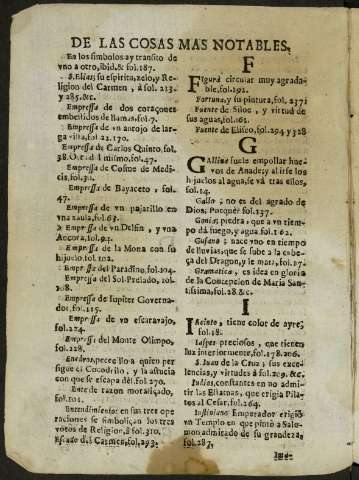 DE LAS COSAS MAS NOTABLES.
En los simbolos ay transito de
vno a otro, ibid. & fol. 187.
S. Elias; su espiritu, zelo, y Re-
ligion del Carmen, à fol. 213.
y 285. &c.
Empressa de dos coraçones
embestidos de llamas, fol. 7.
Empressa de vn antojo de larga
vista, fol. 22. 170.
Empressa de Carlos Quinto, fol.
38. mismo, fol. 47.
Empressa de Cosme de Medi-
cis, fol.
Empressa de Bayaceto, fol.
47.
Empressa de vn pajarillo en
vna xaula, fol. 63.
Empressa de vn Delfin, y vna
Ancora, fol. 94.
Empressa de la Mona con su
hijuelo, fol. 102.
Empressa del Paradino, fol. 104.
Empressa del Sol-Prelado, fol.
108.
Empressa de Iupiter Governa-
dor, fol. 115.
Empressa de vn escaravajo,
fol. 274.
Empressa del Monte Olimpo,
fol. 228.
pececillo à quien per
sigue el Cocodrilo, y la astucia
con que se escapa dèl. fol. 270.
Ente de razon moralizado,
fol. 101.
Entendimiento: en sus tres ope
raciones se simboliçan los tres
votos de Religion, à fol. 310.
Escudo del Carmen, fol. 293.
F
Figura circular muy agrada-
ble, fol. 192.
Fortuna, y su pintura, fol. 237.
Fuente de Siloe, y virtud de
sus aguas, fol. 161.
Fuente de Eliseo, fol. 294 y 328
G
Gallina suele empollar hue-
vos de Anades; al irse los
hijuelos al agua, se và tras ellos,
fol. 14.
Gallo, no es del agrado de
Dios. Porquè? fol. 137.
piedra, que a vn tiem-
po dà fuego, y agua, fol. 162.
Gusano; nace vno en tiempo
de lluvias, que se sube a la cabe-
ça del Dragon, y le mata, fol. 174
Gramatica, es idea en gloria
de la Concepcion de Maria San-
tissima, fol. 28. &c.
I
Iacinto, tiene color de ayre,
fol. 18.
Iaspes preciosos, que tienen
luz interiormente, fol. 178. 206.
S. Iuan de la Cruz; sus exce-
lencias, y virtudes à fol. 209. &c.
Iudios, constantes en no admi-
tir las Estatuas, que erigia Pila-
tos al Cesar, fol. 264.
Iustiniano Emperador erigiò
vn Templo en que pintò a Salo-
mon admirado de su grandeza,
fol. 287.